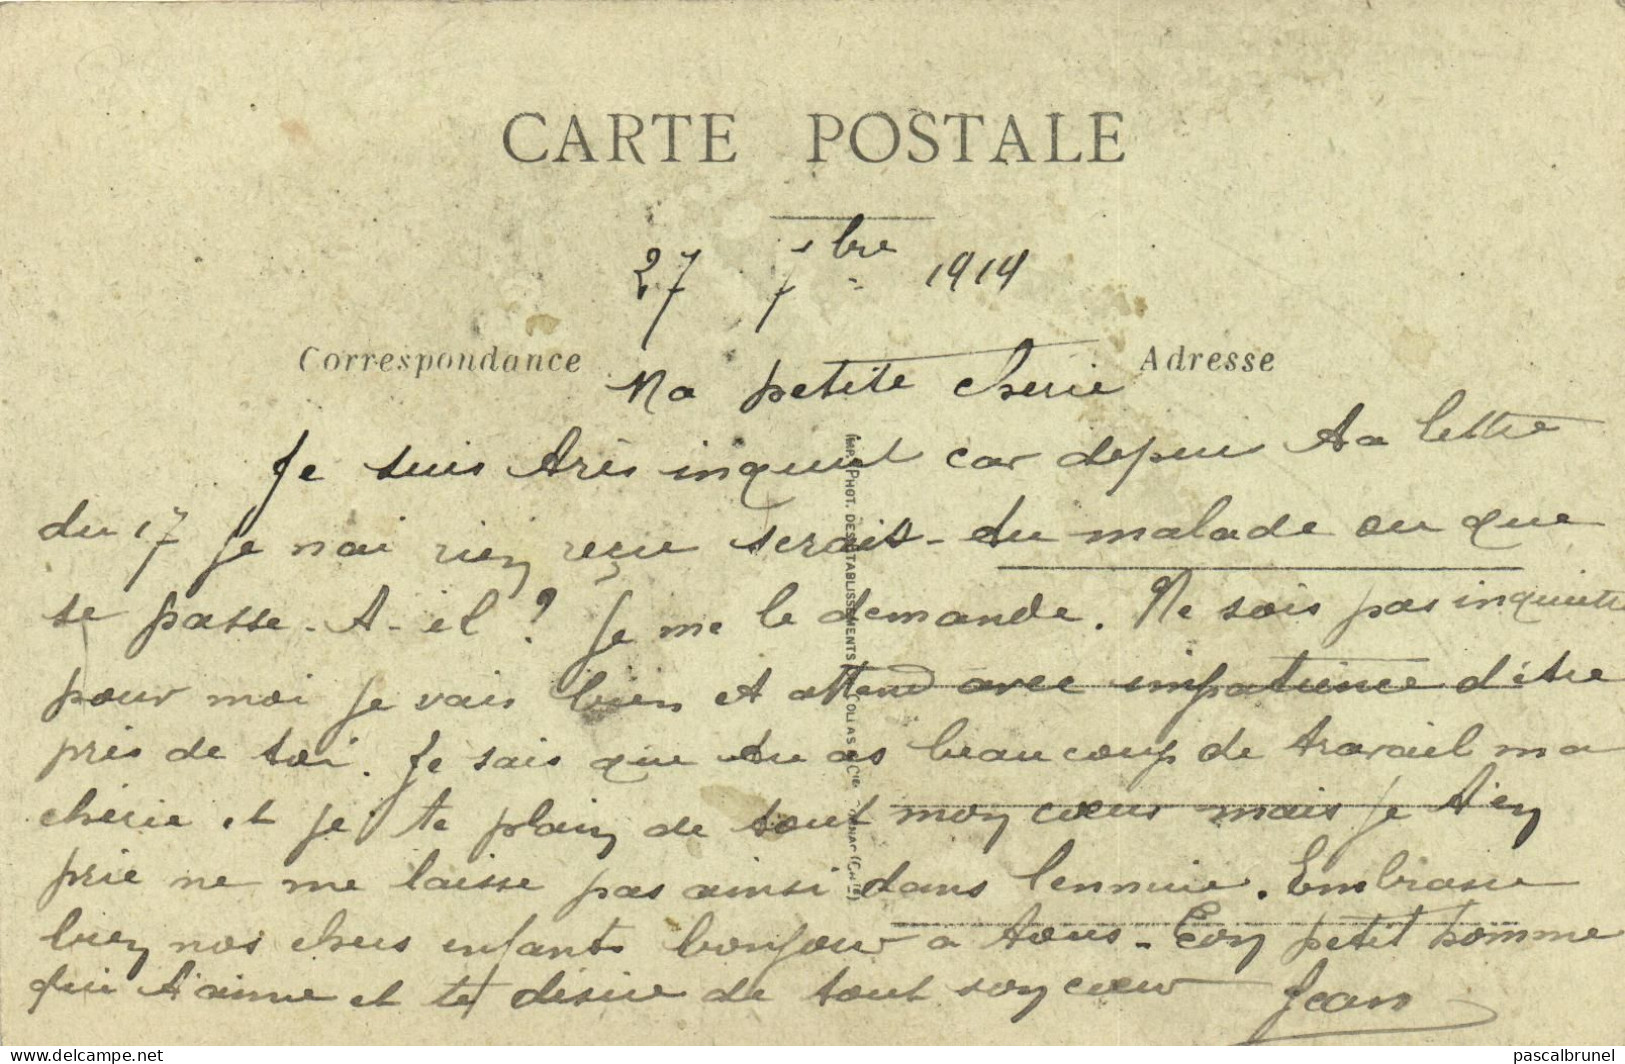 CARTE POSTALE
27 7bre 1914
Correspondance
Adresse
Ma petite cherie
Je suis très inquiet car depuis ta lettre
du 17 je nai rien reçu serais-tu malade ou que
se passe-t-il ? Je me le demande. Ne sois pas inquiète
pour moi je vais bien et attend avec impatience d'être
près de toi. Je sais que tu as beaucoup de travail ma
chérie et je te plain de tout mon cœur mais je t'en
prie ne me laisse pas ainsi dans lennuie. Embrasse
bien nos chers enfants bonjour a tous - Ton petit homme
qui t'aime et te désire de tout son cœur Jean
IMP. PHOT. DES ETABLISSEMENTS COLLAS & Cie COGNAC (Chte)
pascalbrunel